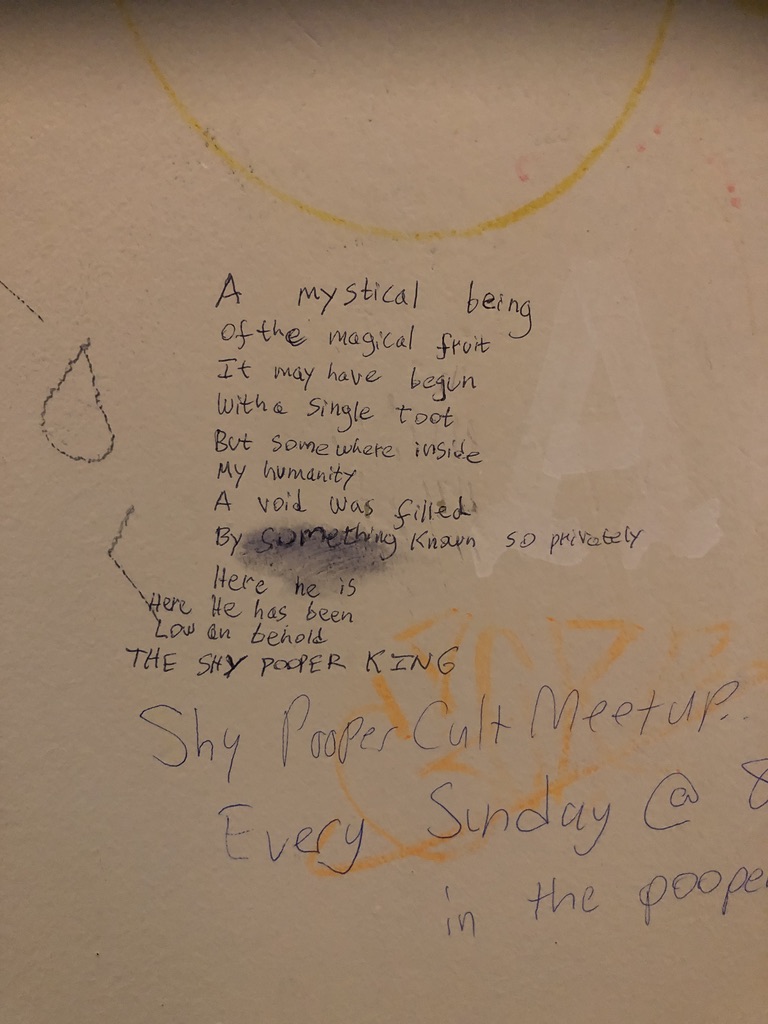 A mystical being
Of the magical fruit
It may have begun
With a single toot
But somewhere inside
My humanity
A void was filled
By something known so privately
Here he is
Here He has been
Low an behold
THE SHY POOPER KING
Shy Pooper Cult Meetup..
Every Sunday @ 8
in the poope